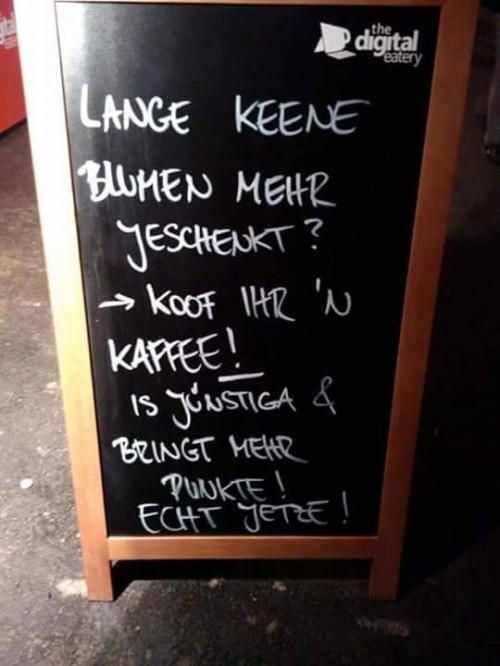 the
digital
eatery
LANGE KEENE
BLUMEN MEHR
JESCHENKT?
→ KOOF IHR 'N
KAFFEE!
IS JÜNSTIGA &
BRINGT MEHR
PUNKTE!
ECHT JETZE!